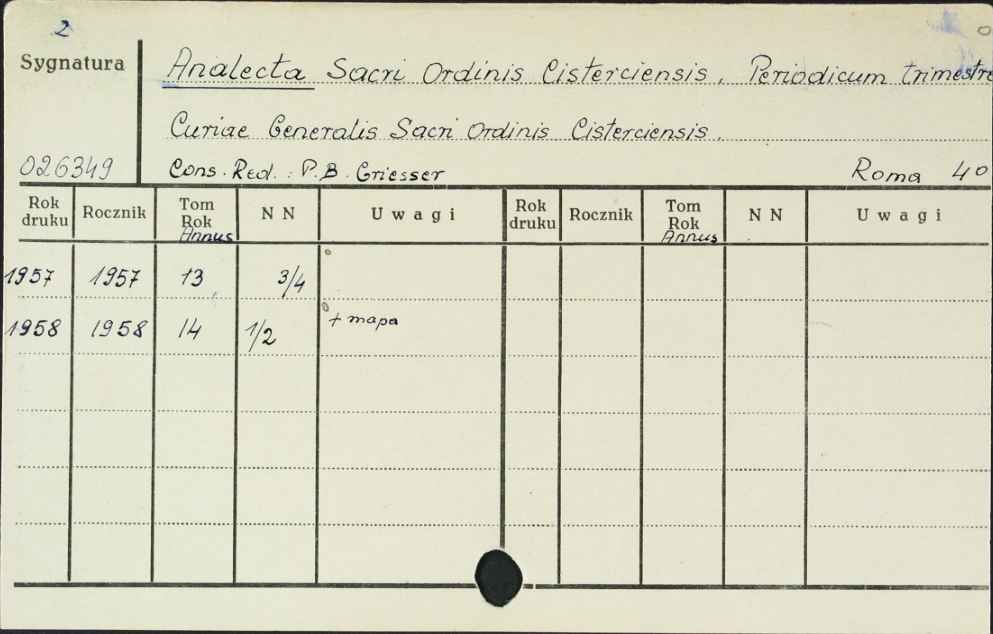 2
Sygnatura
Analecta Sacri Ordinis Cisterciensis. Periodicum trimestre
Curiae Generalis Sacri Ordinis Cisterciensis.
026349 Cons. Red.: P. B. Griesser Roma 4°
Rok druku Rocznik Tom Rok Annus N N Uwagi Rok druku Rocznik Tom Rok Annus N N Uwagi
1957 1957 13 3/4
1958 1958 14 1/2 + mapa